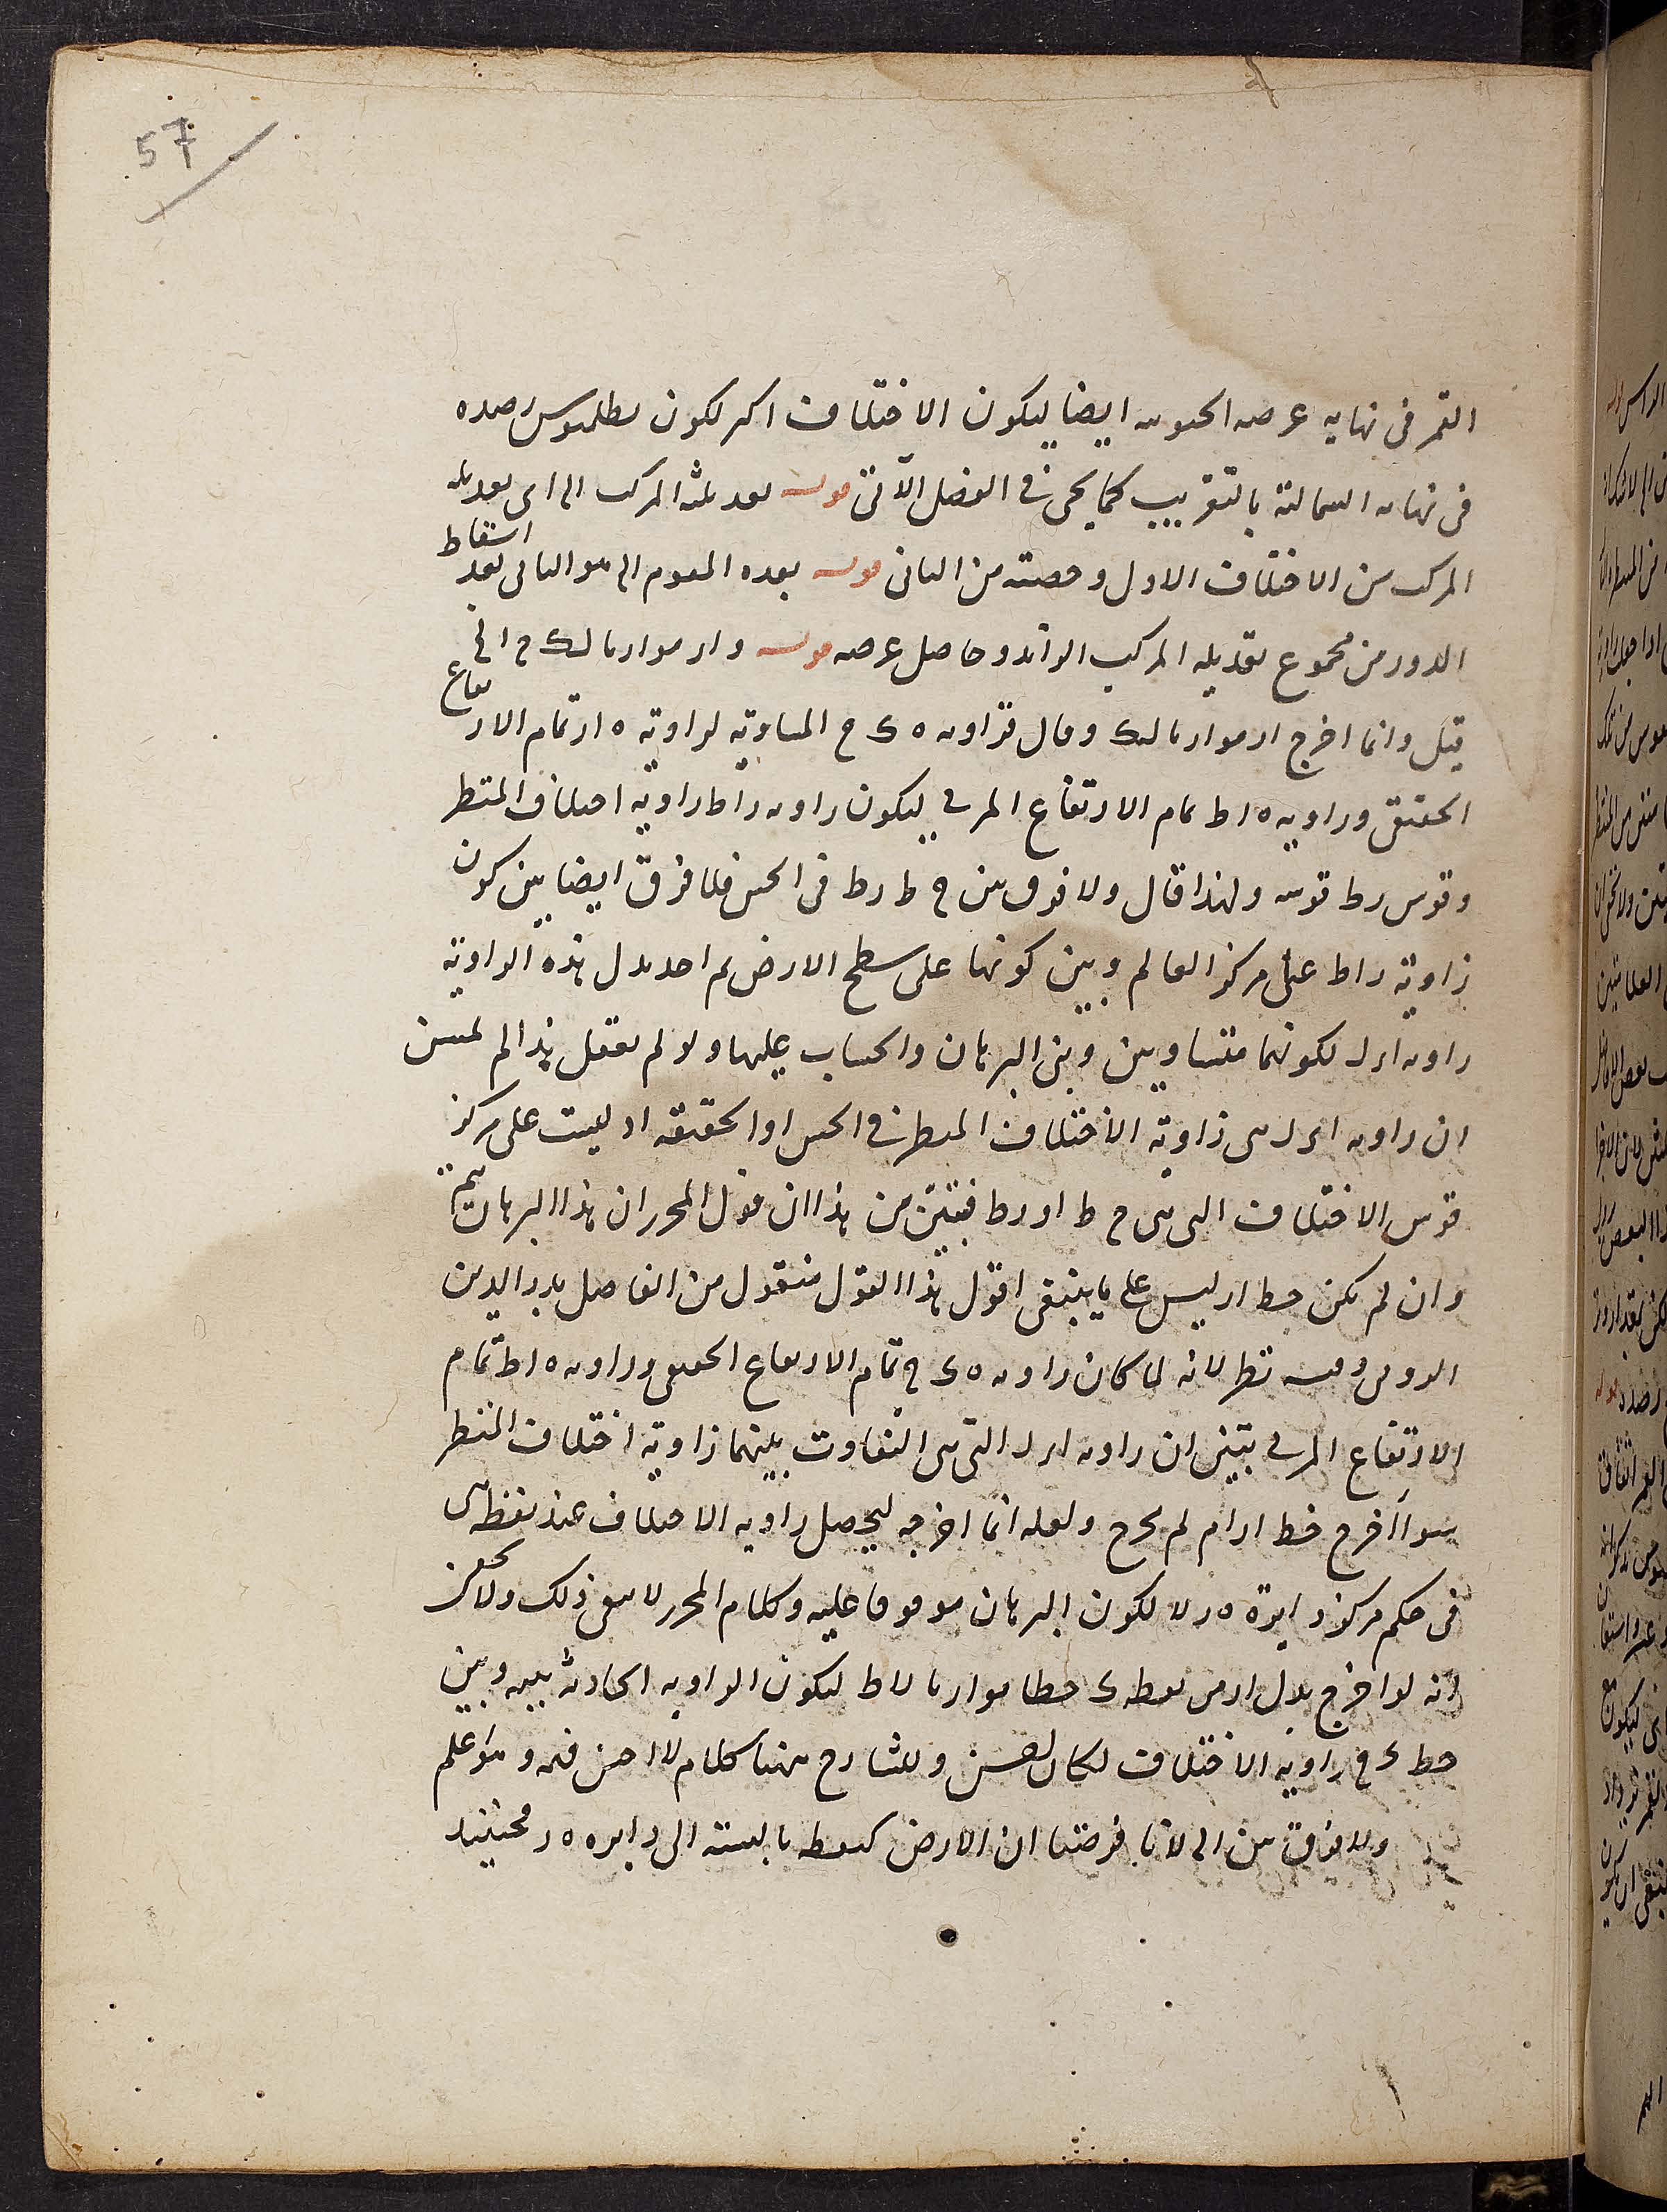 57
القمر فى نهاية عرضه الجنوبى ايضا ليكون الاختلاف اكثر لكون بطلميوس رصده
فى نهاية الشمالية بالتقريب كما يجى فى الفصل الآتى قوله بعديله المركب الى اى بعديله
المركب من الاختلاف الاول وحصته من الثانى قوله بعده المقوم الى هو الباقى بعد اسقاط
الدور من مجموع تعديله المركب الزائد وحاصل عرضه قوله وار موازيا لك ح الخ
قيل وانما اخرج ار موازيا لك وقال فزاوية ه ك ح المساوية لزاوية ه ار تمام الارتفاع
الحقيقى وزاوية ه اط تمام الارتفاع المرئى ليكون زاوية راط زاوية اختلاف المنظر
وقوس رط قوسه ولهذا قال ولا فرق بين ح ط رط فى الحس فلا فرق ايضا بين كون
زاوية راط على مركز العالم وبين كونها على سطح الارض ثم اخذ بدل هذه الزاوية
زاوية ارك لكونهما متساويين وبنى البرهان والحساب عليها ولو لم يفعل هذا لم يتبين
ان زاوية ارك هى زاوية الاختلاف المنظر فى الحس او الحقيقة اذ ليست على مركز
قوس الاختلاف التى هى ح ط او رط فتبين من هذا ان قول المحرر ان هذا البرهان يتم
وان لم يكن خط ار ليس على ما ينبغى اقول هذا القول منقول من الفاضل بدر الدين
الرومى وفيه نظر لانه لما كان زاوية ه ك ح تمام الارتفاع الحقيقى وزاوية ه اط تمام
الارتفاع المرئى يتبين ان زاوية ارك التى هى التفاوت بينهما زاوية اختلاف المنظر
سواء اخرج خط ار ام لم يخرج ولعله انما اخرجه ليحصل زاوية الاختلاف عند نقطة هى
فى حكم مركز دايرة ه ر لا لكون البرهان موقوفا عليه وكلام المحرر لا ينفى ذلك ولا يخفى
انه لو اخرج بدل ار من نقطة ك خطا موازيا لاط ليكون الزاوية الحادثة بينه وبين
خط ك ح زاوية الاختلاف لكان احسن وللشارح ههنا كلام لا احسن فيه وهو اعلم
ولا فرق بين الى لانا فرضنا ان الارض كنقطة بالنسبة الى دايرة ه ر فحينئذ